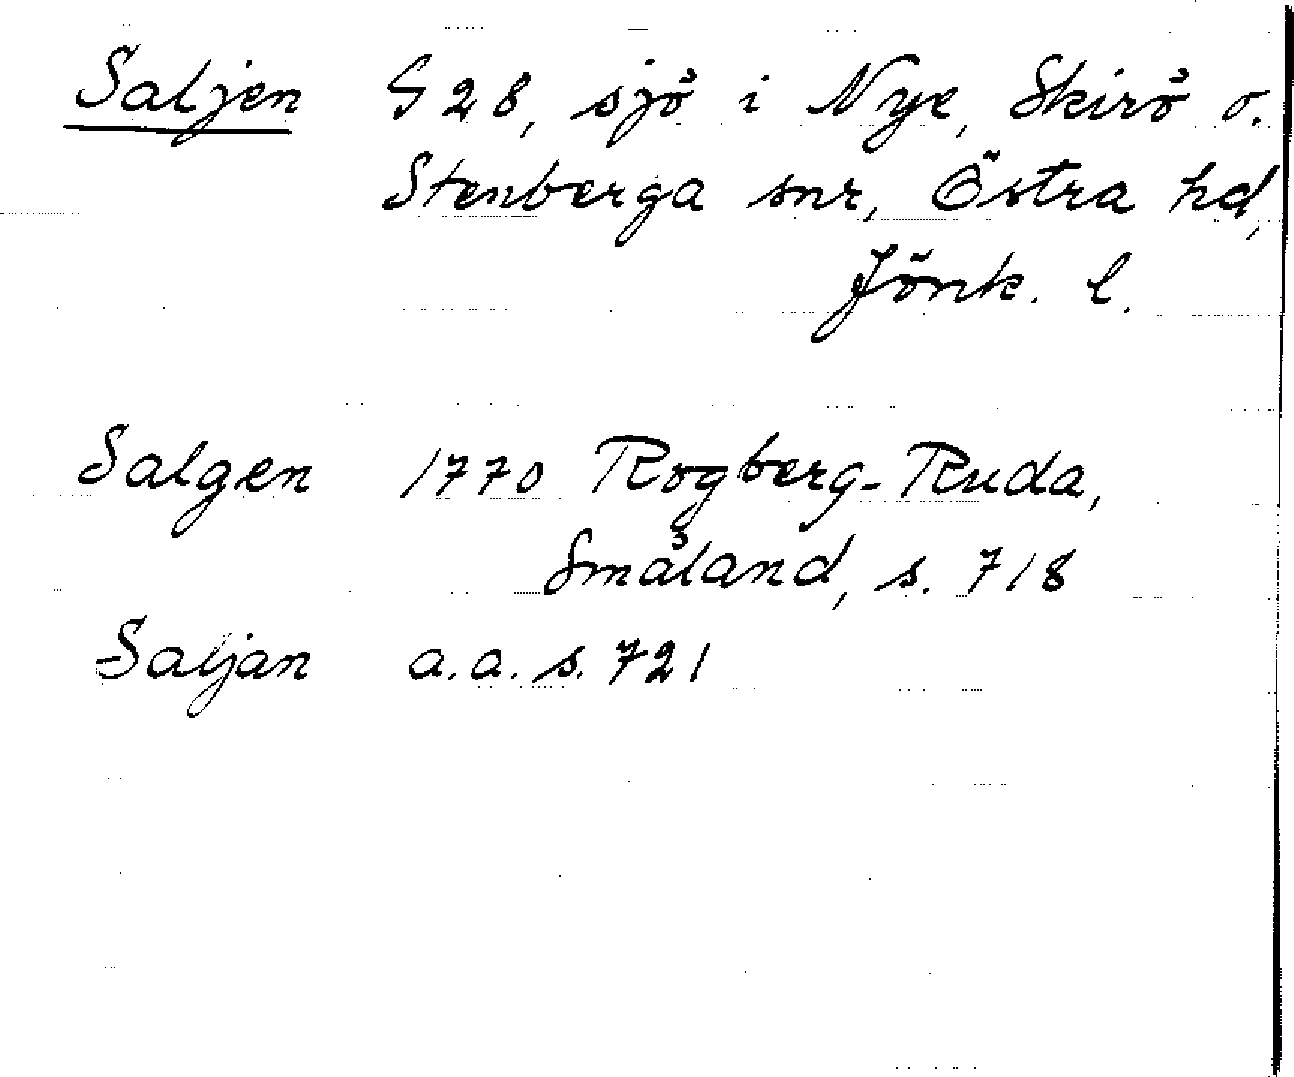 Saljen G 28, sjö i Nye, Skirö o.
Stenberga snr, Östra hd,
Jönk. l.
Salgen 1770 Rogberg-Ruda,
Småland, s. 718
Saljan a.a. s. 721